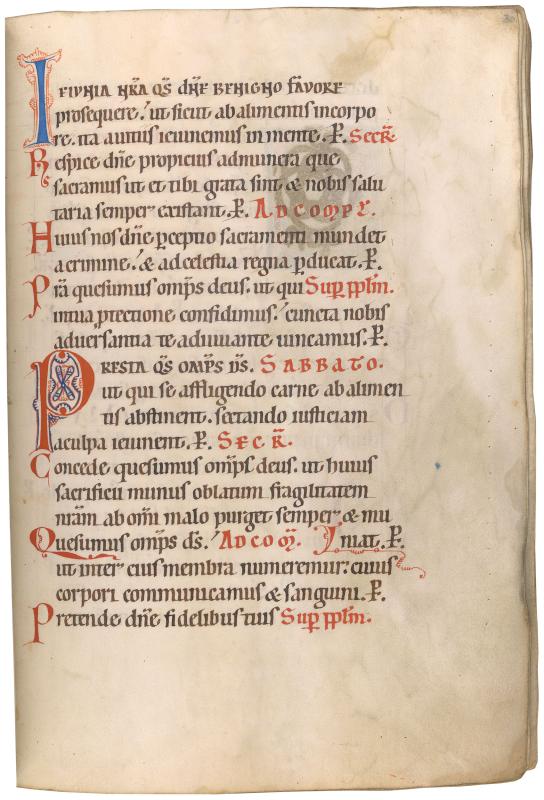 IEIUNIA NRA QS DNE BENIGNO FAVORE
prosequere. ut sicut ab alimentis in corpo
re. ita a uitiis ieiunemus in mente. P. Secr.
Respice dne propicius ad munera que
sacramus ut et tibi grata sint & nobis salu
taria semper existant. P. AD COMPL.
Huius nos dne pceptio sacramenti mundet
a crimine. & ad celestia regna pducat. P.
Pra quesumus omps deus. ut qui Sup pplm.
in tua ptectione confidimus. cuncta nobis
aduersantia te adiuuante uincamus. P.
PRESTA QS OMPS DS. SABBATO.
ut qui se affligendo carne ab alimen
tis abstinent. sectando iusticiam
a culpa ieiunent. P. SECR.
Concede quesumus omps deus. ut huius
sacrificii munus oblatum fragilitatem
nram ab omi malo purget semper & mu
Quesumus omps ds. AD COM. niat. P.
ut inter eius membra numeremur: cuius
corpori communicamus & sanguini. P.
Pretende dne fidelibus tuis Sup pplm.